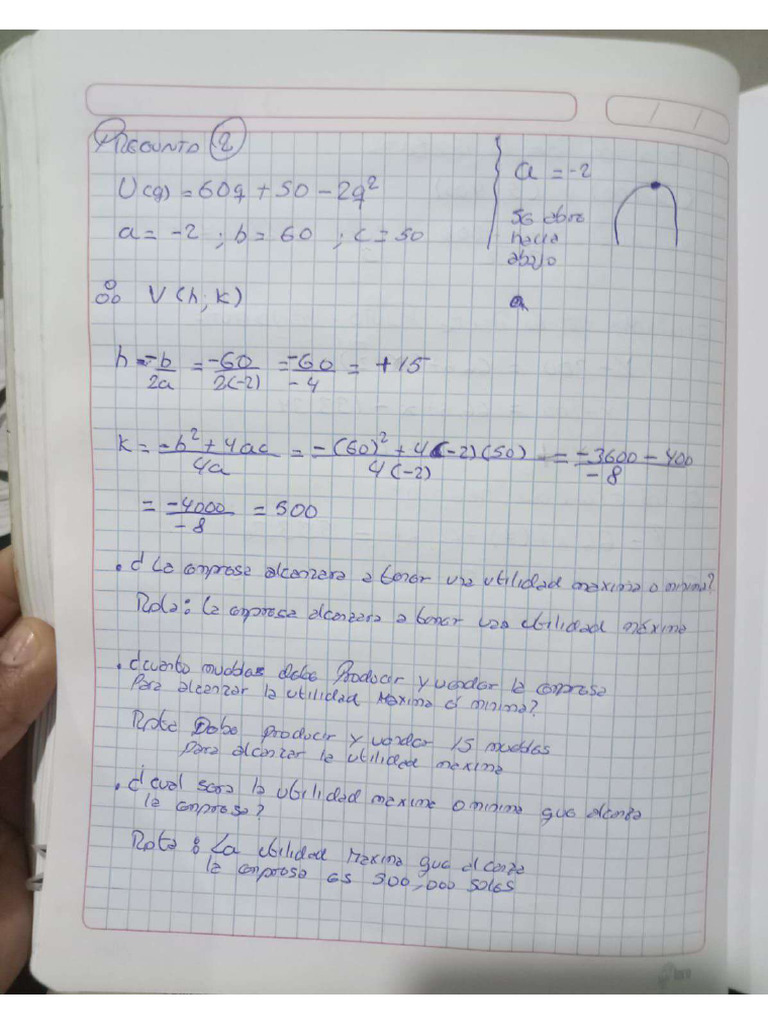 PREGUNTA 2
U(q) = 60q + 50 - 2q²
a = -2 ; b = 60 ; c = 50
a = -2
se abre
hacia
abajo
V(h; k)
h = -b/2a = -60/2(-2) = -60/-4 = +15
k = -b² + 4ac/4a = -(60)² + 4(-2)(50)/4(-2) = -3600 - 400/-8
= -4000/-8 = 500
• ¿La empresa alcanzara a tener una utilidad maxima o minima?
Rpta: La empresa alcanzara a tener una utilidad máxima
• ¿cuanto muebles debe Producir y vender la empresa
Para alcanzar la utilidad Maxima ó minima?
Rpta Debe producir y vender 15 muebles
para alcanzar la utilidad maxima
• ¿cual sera la utilidad maxima o minima que alcanza
la empresa?
Rpta: La utilidad Maxima que alcanza
la empresa es 500,000 soles